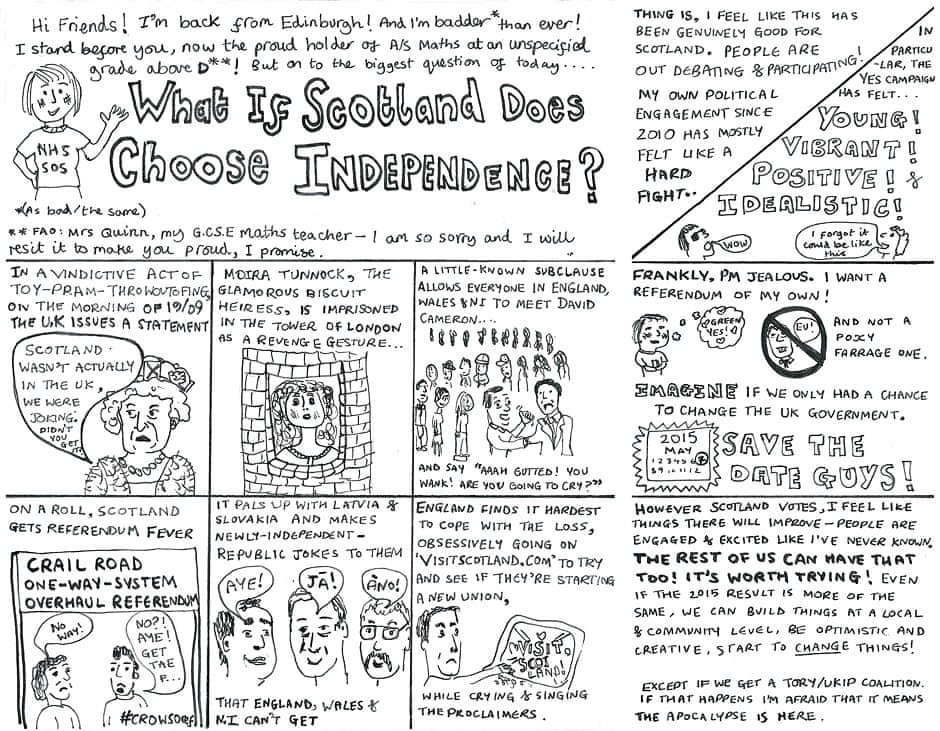 Hi Friends! I'm back from Edinburgh! And I'm badder* than ever!
I stand before you, now the proud holder of A/S Maths at an unspecified
grade above D**! But on to the biggest question of today....
What If Scotland Does
Choose Independence?
NHS
SOS
*(As bad/the same)
** FAO: Mrs Quinn, my G.C.S.E Maths teacher – I am so sorry and I will
resit it to make you proud, I promise.
THING IS, I FEEL LIKE THIS HAS
BEEN GENUINELY GOOD FOR
SCOTLAND. PEOPLE ARE
OUT DEBATING & PARTICIPATING!
MY OWN POLITICAL
ENGAGEMENT SINCE
2010 HAS MOSTLY
FELT LIKE A
HARD
FIGHT..
IN
PARTICU
-LAR, THE
YES CAMPAIGN
HAS FELT...
YOUNG!
VIBRANT!
POSITIVE! &
IDEALISTIC!
WOW
I forgot it
could be like
this
IN A VINDICTIVE ACT OF
TOY-PRAM-THROWOUTOFING,
ON THE MORNING OF 19/09
THE UK ISSUES A STATEMENT
SCOTLAND
WASN'T ACTUALLY
IN THE UK,
WE WERE
JOKING.
DIDN'T
YOU
GET
MOIRA TUNNOCK, THE
GLAMOROUS BISCUIT
HEIRESS, IS IMPRISONED
IN THE TOWER OF LONDON
AS A REVENGE GESTURE...
A LITTLE-KNOWN SUBCLAUSE
ALLOWS EVERYONE IN ENGLAND,
WALES & NI TO MEET DAVID
CAMERON....
AND SAY "AAAH GUTTED! YOU
WANK! ARE YOU GOING TO CRY?"
FRANKLY, I'M JEALOUS. I WANT A
REFERENDUM OF MY OWN!
GREEN
YES!
EU!
AND NOT A
POXY
FARRAGE ONE.
IMAGINE IF WE ONLY HAD A CHANCE
TO CHANGE THE UK GOVERNMENT.
2015
MAY
1 2 3 4 5 6 7
8 9 10 11 12
SAVE THE
DATE GUYS!
ON A ROLL, SCOTLAND
GETS REFERENDUM FEVER
CRAIL ROAD
ONE-WAY-SYSTEM
OVERHAUL REFERENDUM
NO
WAY!
NO?!
AYE!
GET
TAE
F...
#CROWSORF
IT PALS UP WITH LATVIA &
SLOVAKIA AND MAKES
NEWLY-INDEPENDENT-
REPUBLIC JOKES TO THEM
AYE!
JĀ!
ÁNO!
THAT ENGLAND, WALES &
NI CAN'T GET
ENGLAND FINDS IT HARDEST
TO COPE WITH THE LOSS,
OBSESSIVELY GOING ON
'VISITSCOTLAND.COM' TO TRY
AND SEE IF THEY'RE STARTING
A NEW UNION,
VISIT.
SCOT
LAND!
WHILE CRYING & SINGING
THE PROCLAIMERS.
HOWEVER SCOTLAND VOTES, I FEEL LIKE
THINGS THERE WILL IMPROVE – PEOPLE ARE
ENGAGED & EXCITED LIKE I'VE NEVER KNOWN.
THE REST OF US CAN HAVE THAT
TOO! IT'S WORTH TRYING! EVEN
IF THE 2015 RESULT IS MORE OF THE
SAME, WE CAN BUILD THINGS AT A LOCAL
& COMMUNITY LEVEL, BE OPTIMISTIC AND
CREATIVE, START TO CHANGE THINGS!
EXCEPT IF WE GET A TORY/UKIP COALITION.
IF THAT HAPPENS I'M AFRAID THAT IT MEANS
THE APOCALYPSE IS HERE.